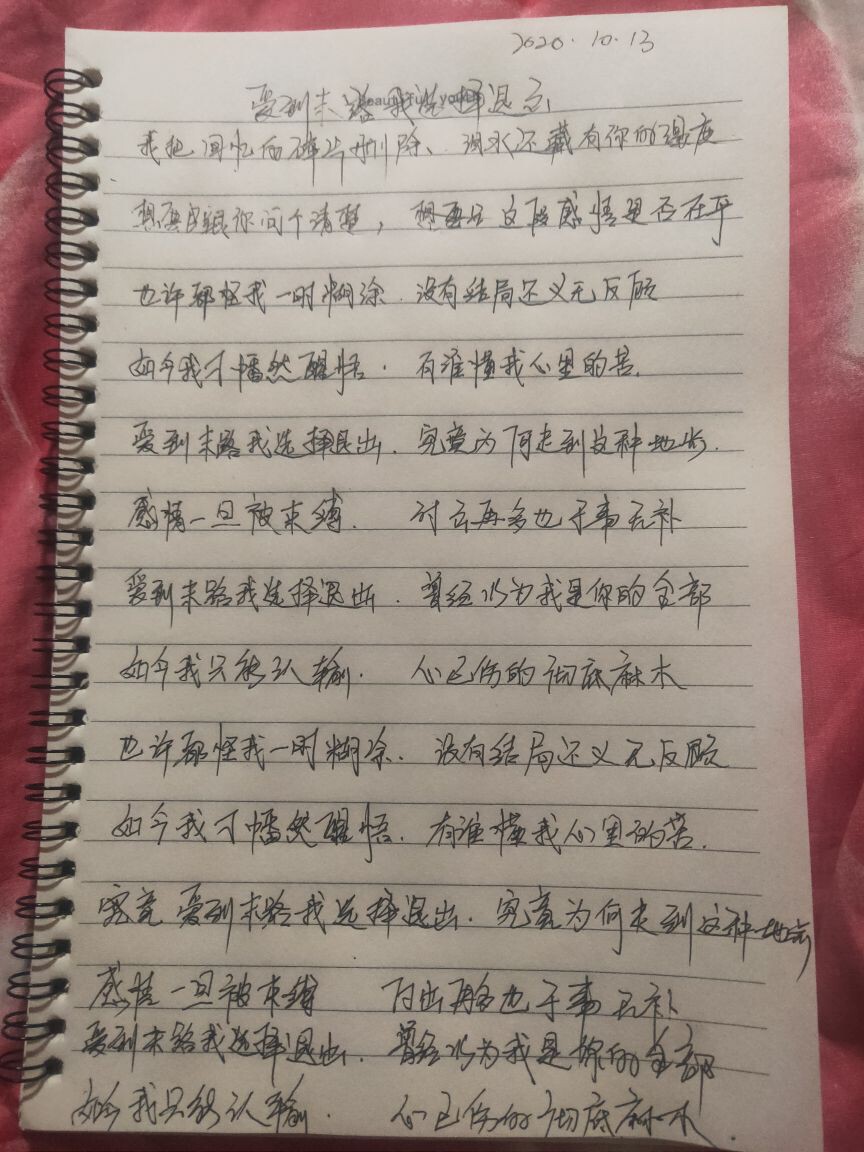 2020.10.13
爱到末路我选择退出
我把回忆的碎片删除、泪水还藏有你的温度
想要跟你问个清楚，想要 这段感情是否在乎
也许都怪我一时糊涂.没有结局还义无反顾
如今我才幡然醒悟.有谁懂我心里的苦.
爱到末路我选择退出.究竟为何走到这种地步.
感情一旦被束缚.付出再多也于事无补
爱到末路我选择退出.曾经以为我是你的全部
如今我只能认输.心已伤的彻底麻木
也许都怪我一时糊涂.没有结局还义无反顾
如今我才幡然醒悟.有谁懂我心里的苦.
究竟 爱到末路我选择退出.究竟为何走到这种地步
感情一旦被束缚 付出再多也于事无补
爱到末路我选择退出.曾经以为我是你的全部
如今我只能认输.心已伤的彻底麻木.